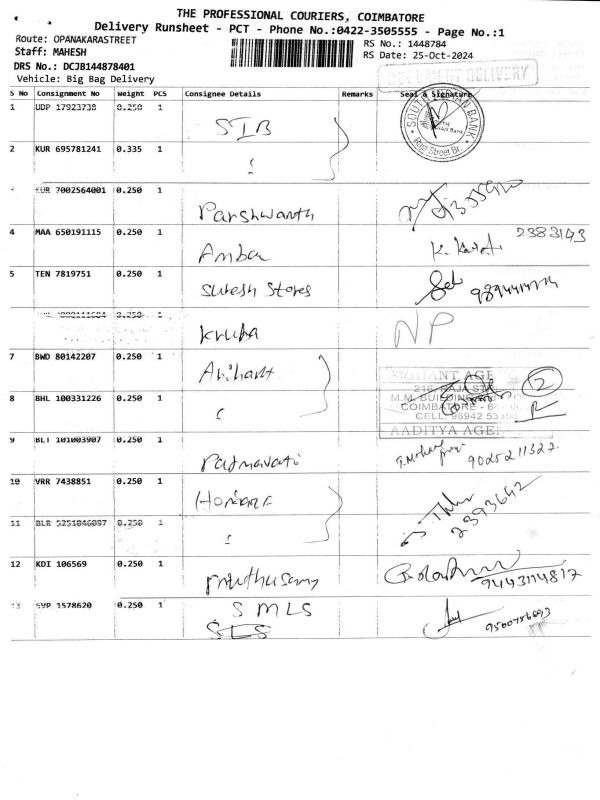 THE PROFESSIONAL COURIERS, COIMBATORE
Delivery Runsheet - PCT - Phone No.:0422-3505555 - Page No.:1
Route: OPANAKARASTREET
Staff: MAHESH
DRS No.: DCJB144878401
Vehicle: Big Bag Delivery
RS No.: 1448784
RS Date: 25-Oct-2024
DOCUMENT DELIVERY
S No Consignment No Weight PCS Consignee Details Remarks Seal & Signature
1 UDP 17923738 0.250 1 SIB
SOUTH INDIAN BANK
Raja Street Br.
2 KUR 695781241 0.335 1
KUR 7002564001 0.250 1 Parshwanth
4 MAA 650191115 0.250 1 Amba 2383143
5 TEN 7819751 0.250 1 Suresh Stores
0.250 1 Kruba NP
7 BWD 80142207 0.250 1 Arihant
8 BHL 100331226 0.250 1 2
216, RAJA ST
M.M. BUILDING
COIMBATORE - 641
CELL: 98942
AADITYA AGEN
9 BLT 101003907 0.250 1 Padmavati 9025211322
10 VRR 7438851 0.250 1 2393642
11 BLR 5251046097 0.250 1
12 KDI 106569 0.250 1 Muthusamy 9443114817
13 SVP 1578620 0.250 1 SMLS
SLS